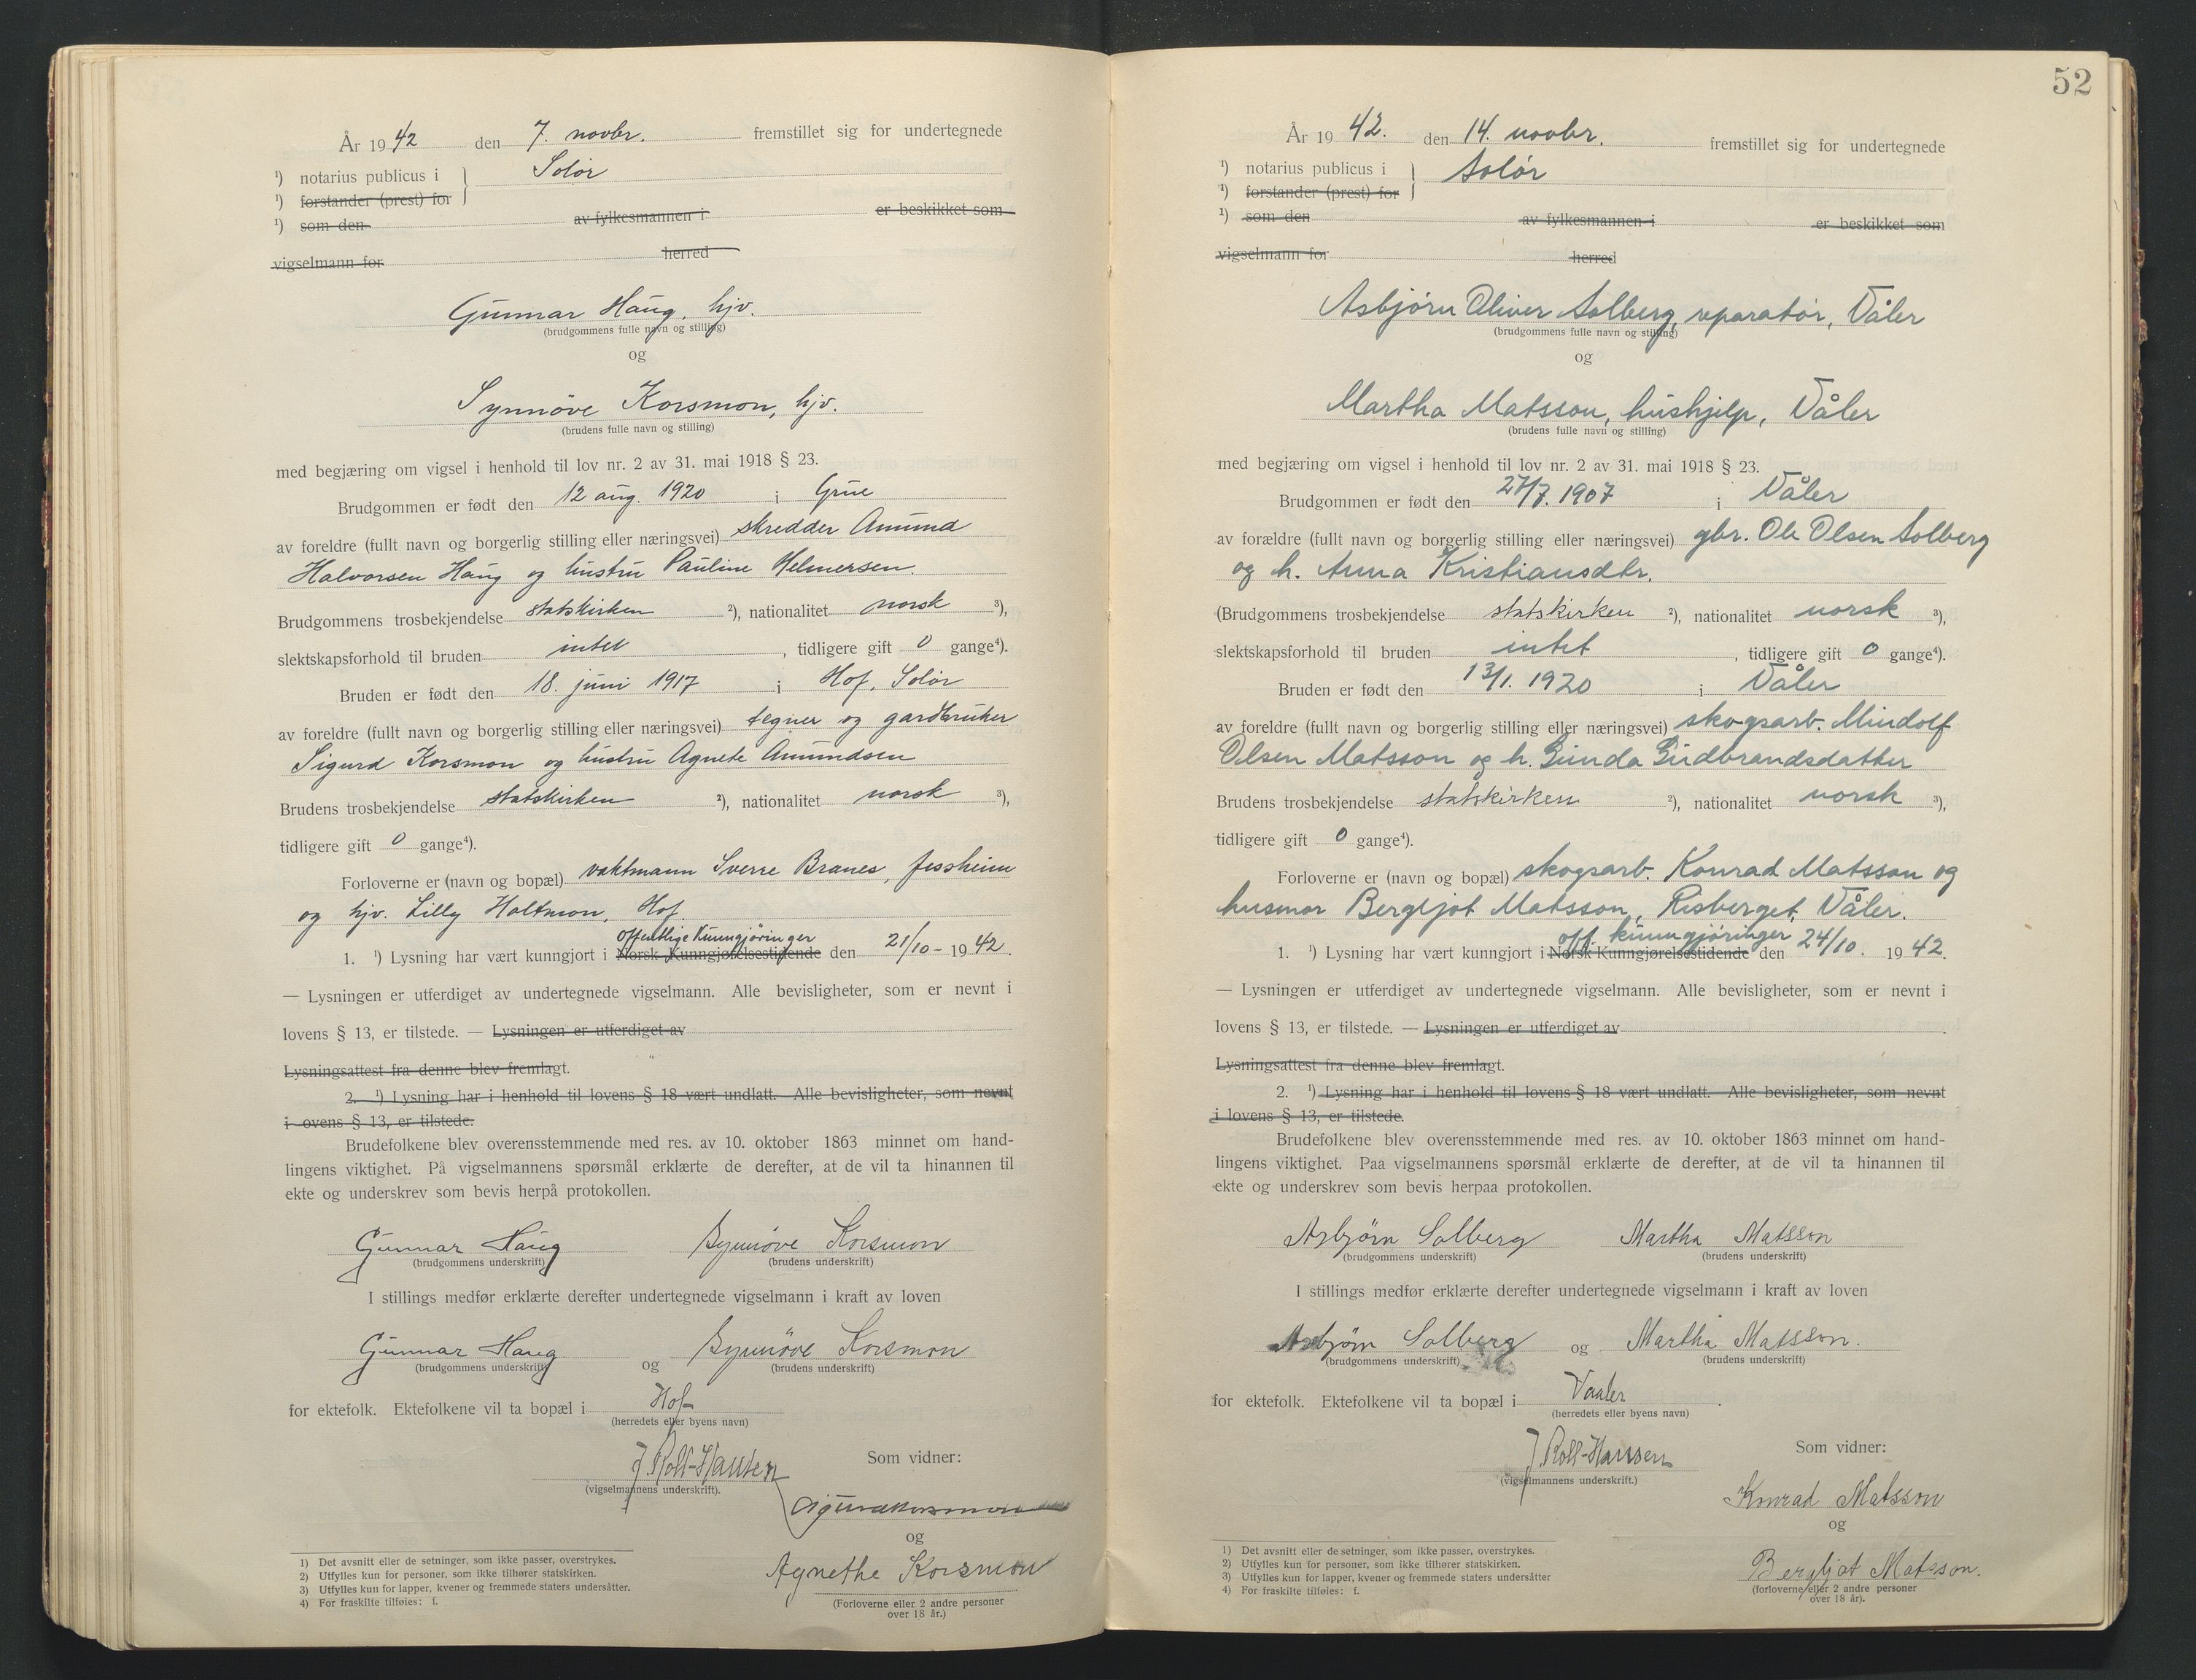 År 1942 den 7. novbr. fremstillet sig for undertegnede
¹) notarius publicus i } Solør
¹) forstander (prest) for
¹) som den av fylkesmannen i er beskikket som
vigselmann for herred
Gunnar Haug, hjv.
(brudgommens fulle navn og stilling)
og
Synnöve Korsmon, hjv.
(brudens fulle navn og stilling)
med begjæring om vigsel i henhold til lov nr. 2 av 31. mai 1918 § 23.
Brudgommen er født den 12 aug. 1920 i Grue
av foreldre (fullt navn og borgerlig stilling eller næringsvei) skredder Amund
Halvorsen Haug og hustru Pauline Helmersen.
Brudgommens trosbekjendelse statskirken ²), nationalitet norsk ³),
slektskapsforhold til bruden intet, tidligere gift 0 gange⁴).
Bruden er født den 18. juni 1917 i Hof, Solør
av foreldre (fullt navn og borgerlig stilling eller næringsvei) tegner og gardbruker
Sigurd Korsmon og hustru Agnete Amundsen
Brudens trosbekjendelse statskirken ²), nationalitet norsk ³),
tidligere gift 0 gange⁴).
Forloverne er (navn og bopæl) vaktmann Sverre Branes, Jessheim
og hjv. Lilly Holtmon, Hof.
offentlige Kunngjøringer
1. ¹) Lysning har vært kunngjort i Norsk Kunngjørelsestidende den 21/10 - 1942.
— Lysningen er utferdiget av undertegnede vigselmann. Alle bevisligheter, som er nevnt i
lovens § 13, er tilstede. — Lysningen er utferdiget av
Lysningsattest fra denne blev fremlagt.
2. ¹) Lysning har i henhold til lovens § 18 vært undlatt. Alle bevisligheter, som nevnt
i ovens § 13, er tilstede.
Brudefolkene blev overensstemmende med res. av 10. oktober 1863 minnet om hand-
lingens viktighet. På vigselmannens spørsmål erklærte de derefter, at de vil ta hinannen til
ekte og underskrev som bevis herpå protokollen.
Gunnar Haug Synnöve Korsmon
(brudgommens underskrift) (brudens underskrift)
I stillings medfør erklærte derefter undertegnede vigselmann i kraft av loven
Gunnar Haug og Synnöve Korsmon
(brudgommens underskrift) (brudens underskrift)
for ektefolk. Ektefolkene vil ta bopæl i Hof
(herredets eller byens navn)
J Roll-Hansen Som vidner:
(vigselmannens underskrift).
Sigurd Korsmon
og
Agnethe Korsmon
(Forloverne eller 2 andre personer
over 18 år.)
1) Det avsnitt eller de setninger, som ikke passer, overstrykes.
2) Utfylles kun for personer, som ikke tilhører statskirken.
3) Utfylles kun for lapper, kvener og fremmede staters undersåtter.
4) For fraskilte tilføies: f.
52
År 1942. den 14. novbr. fremstillet sig for undertegnede
¹) notarius publicus i } Solør
¹) forstander (prest) for
¹) som den av fylkesmannen i er beskikket som
vigselmann for herred
Asbjörn Oliver Solberg, reparatör, Våler
(brudgommens fulle navn og stilling)
og
Martha Matsson, hushjelp, Våler
(brudens fulle navn og stilling)
med begjæring om vigsel i henhold til lov nr. 2 av 31. mai 1918 § 23.
Brudgommen er født den 27/7. 1907 i Våler
av forældre (fullt navn og borgerlig stilling eller næringsvei) gbr. Ole Olsen Solberg
og h. Anna Kristiansdtr.
(Brudgommens trosbekjendelse statskirken ²), nationalitet norsk ³),
slektskapsforhold til bruden intet, tidligere gift 0 gange⁴).
Bruden er født den 13/1. 1920 i Våler
av foreldre (fullt navn og borgerlig stilling eller næringsvei) skogsarb. Mindolf
Olsen Matsson og h. Gunda Gudbrandsdatter
Brudens trosbekjendelse statskirken ²), nationalitet norsk ³),
tidligere gift 0 gange⁴).
Forloverne er (navn og bopæl) skogsarb. Konrad Matsson og
husmor Bergljot Matsson, Risberget, Våler.
off. kunngjøringer
1. ¹) Lysning har vært kunngjort i Norsk Kunngjørelsestidende den 24/10. 1942.
— Lysningen er utferdiget av undertegnede vigselmann. Alle bevisligheter, som er nevnt i
lovens § 13, er tilstede. — Lysningen er utferdiget av .
Lysningsattest fra denne blev fremlagt.
2. ¹) Lysning har i henhold til lovens § 18 vært undlatt. Alle bevisligheter, som nevnt
i lovens § 13, er tilstede.
Brudefolkene blev overensstemmende med res. av 10. oktober 1863 minnet om hand-
lingens viktighet. Paa vigselmannens spørsmål erklærte de derefter, at de vil ta hinannen til
ekte og underskrev som bevis herpaa protokollen.
Asbjörn Solberg Martha Matsson
(brudgommens underskrift) (brudens underskrift)
I stillings medfør erklærte derefter undertegnede vigselmann i kraft av loven
Asbjörn Solberg og Martha Matsson.
(brudgommens underskrift) (brudens underskrift)
for ektefolk. Ektefolkene vil ta bopæl i Vaaler.
(herredets eller byens navn)
J Roll-Hansen Som vidner:
(vigselmannens underskrift.)
Konrad Matsson
og
Bergljot Matsson.
(forloverne eller 2 andre personer
over 18 år).
1) Det avsnitt eller de setninger, som ikke passer, overstrykes.
2) Utfylles kun for personer, som ikke tilhører statskirken.
3) Utfylles kun for lapper, kvener og fremmede staters undersåtter
4) For fraskilte tilføies: f.